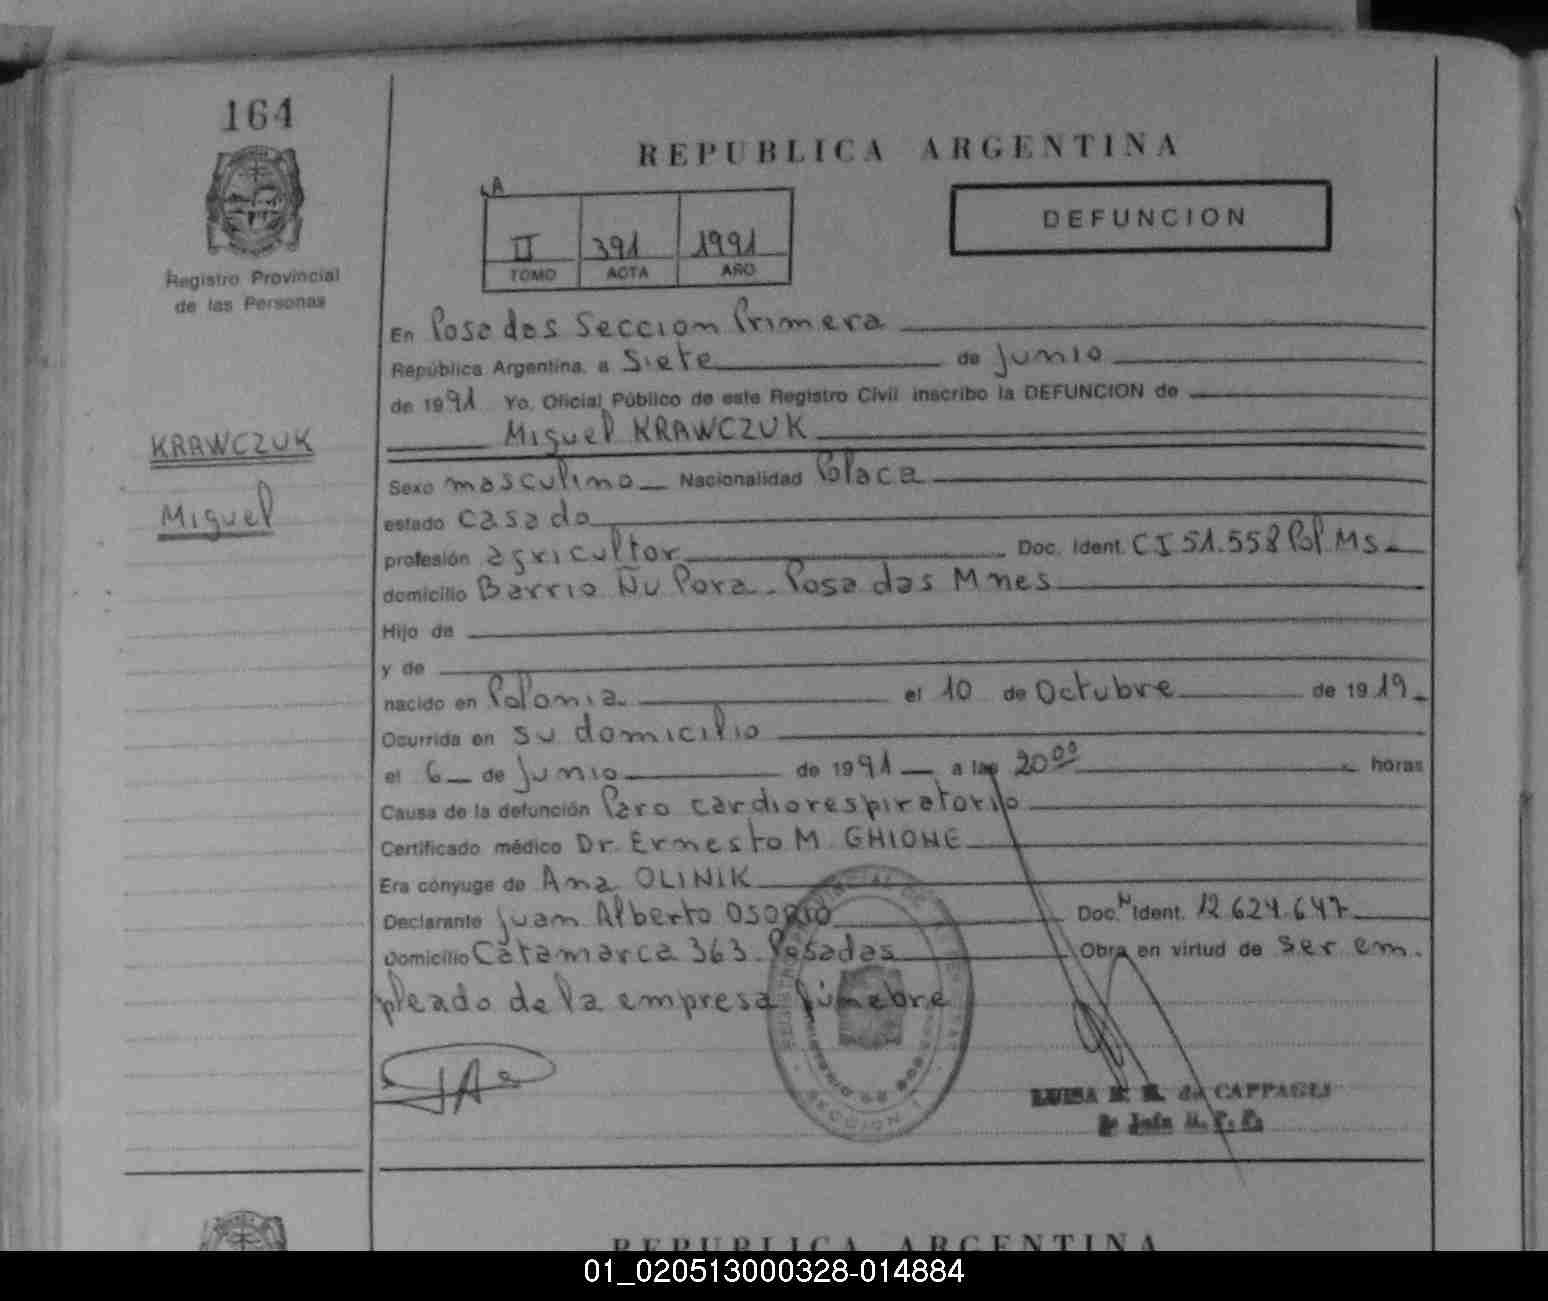 164
REPUBLICA ARGENTINA
A
II 391 1991
TOMO ACTA AÑO
DEFUNCION
Registro Provincial
de las Personas
En Posadas Seccion Primera
República Argentina, a Siete de Junio
de 1991 Yo, Oficial Público de este Registro Civil inscribo la DEFUNCION de
KRAWCZUK
Miguel
Miguel KRAWCZUK
Sexo masculino Nacionalidad Polaca
estado casado
profesión agricultor Doc. Ident. CI 51.558 Pol. Ms
domicilio Barrio Ñu Pora. Posadas Mnes
Hijo de
y de
nacido en Polonia el 10 de Octubre de 1919
Ocurrida en su domicilio
el 6 de Junio de 1991 a las 20⁰⁰ horas
Causa de la defunción Paro cardiorespiratorio
Certificado médico Dr. Ernesto M. GHIONE
Era cónyuge de Ana OLINIK
Declarante Juan Alberto OSORIO Doc. N Ident. 12.624.647
Domicilio Catamarca 363. Posadas Obra en virtud de ser em.
pleado de la empresa fúnebre
JAO
LUISA de CAPPAGLI
REPUBLICA ARGENTINA
01_020513000328-014884